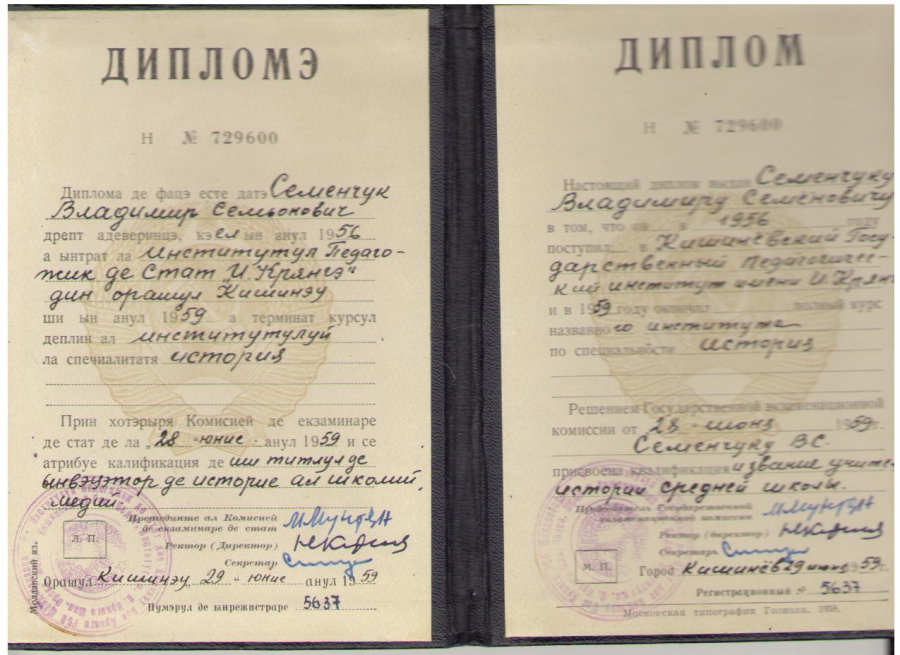 ДИПЛОМЭ
Н № 729600
Диплома де фацэ есте датэ Семенчук
Владимир Семьонович
дрепт адеверинцэ, кэ ел ын анул 1956
а ынтрат ла Институтул Педаго-
жик де Стат „И. Крянгэ"
дин орашул Кишинэу
ши ын анул 1959 а терминат курсул
деплин ал институтулуй
ла спечиалитатя история
Прин хотэрыря Комисией де екзаминаре
де стат де ла „28" юние анул 1959 и се
атрибуе калификация де ши титлул де
ынвэцэтор де историе ал школий
медий.
Прешединте ал Комисией
де екзаминаре де стат
Ректор (Директор)
Секретар
Л. П.
Орашул Кишинэу 29 " юние анул 1959
Нумэрул де ынрежистраре 5637
Молдавский яз.
ДИПЛОМ
Н № 729600
Настоящий диплом выдан Семенчуку
Владимиру Семеновичу
в том, что он в 1956 году
поступил в Кишинёвский Госу-
дарственный Педагогичес-
кий институт имени И. Крянгэ
и в 1959 году окончил полный курс
названного института
по специальности История
Решением Государственной экзаменационной
комиссии от 28 - июня 1959 г.
Семенчуку В С.
присвоена квалификация и звание учителя
истории средней школы.
Председатель Государственной
экзаменационной комиссии
Ректор (директор)
Секретарь
М. П.
Город Кишинёв 29 июня 1959 г.
Регистрационный № 5637
Московская типография Гознака, 1958.